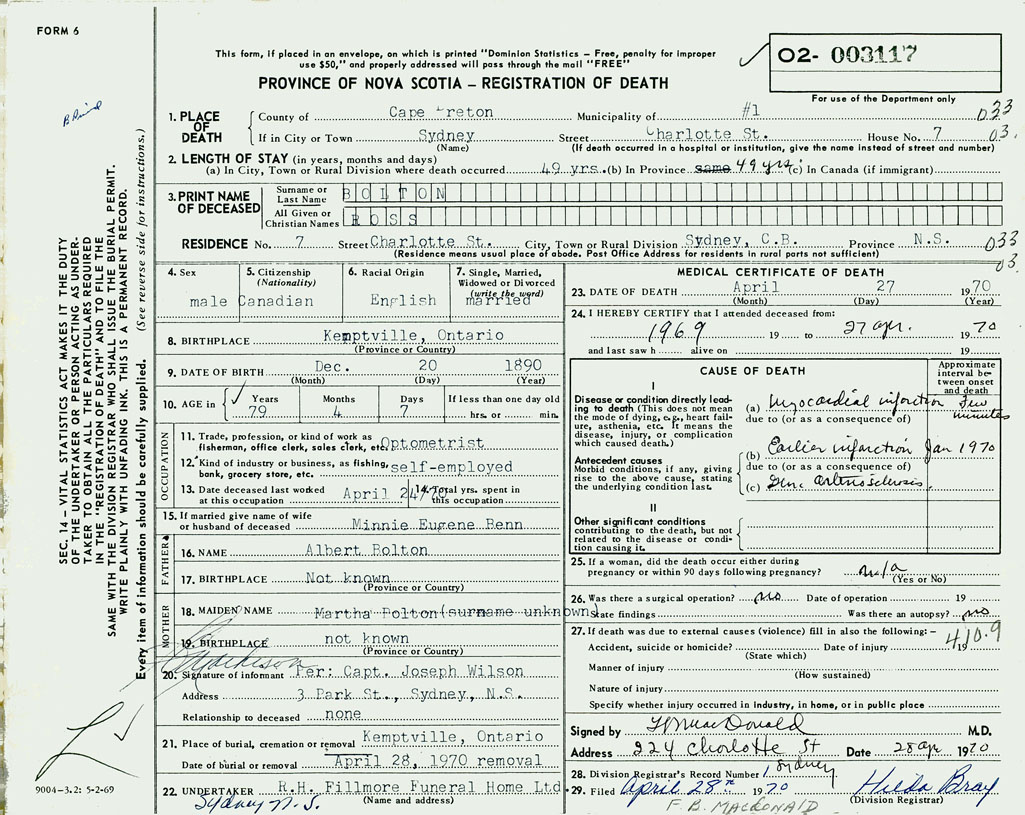 FORM 6
This form, if placed in an envelope, on which is printed "Dominion Statistics – Free, penalty for improper
use $50," and properly addressed will pass through the mail "FREE"
O2- 003117
For use of the Department only
PROVINCE OF NOVA SCOTIA – REGISTRATION OF DEATH
SEC. 14 – VITAL STATISTICS ACT MAKES IT THE DUTY
OF THE UNDERTAKER OR PERSON ACTING AS UNDER-
TAKER TO OBTAIN ALL THE PARTICULARS REQUIRED
IN THE "REGISTRATION OF DEATH" AND TO FILE THE
SAME WITH THE DIVISION REGISTRAR WHO SHALL ISSUE THE BURIAL PERMIT.
WRITE PLAINLY WITH UNFADING INK. THIS IS A PERMANENT RECORD.
Every item of information should be carefully supplied. (See reverse side for instructions.)
1. PLACE OF DEATH
County of Cape reton Municipality of #1 033
If in City or Town Sydney Street Charlotte St. House No. 7 03.
(Name) (If death occurred in a hospital or institution, give the name instead of street and number)
2. LENGTH OF STAY (in years, months and days)
(a) In City, Town or Rural Division where death occurred 49 yrs. (b) In Province same 49 yrs. (c) In Canada (if immigrant)
3. PRINT NAME OF DECEASED
Surname or Last Name BOLTON
All Given or Christian Names ROSS
RESIDENCE No. 7 Street Charlotte St. City, Town or Rural Division Sydney, C.B. Province N.S. 033
(Residence means usual place of abode. Post Office Address for residents in rural parts not sufficient) 03.
4. Sex male
5. Citizenship (Nationality) Canadian
6. Racial Origin English
7. Single, Married, Widowed or Divorced (write the word) married
8. BIRTHPLACE Kemptville, Ontario
(Province or Country)
9. DATE OF BIRTH Dec. 20 1890
(Month) (Day) (Year)
10. AGE in Years 79 Months 4 Days 7 If less than one day old hrs. or min.
OCCUPATION
11. Trade, profession, or kind of work as fisherman, office clerk, sales clerk, etc. Optometrist
12. Kind of industry or business, as fishing, bank, grocery store, etc. self-employed
13. Date deceased last worked at this occupation April 24
14. Total yrs. spent in this occupation
15. If married give name of wife or husband of deceased Minnie Eugene Benn
FATHER
16. NAME Albert Bolton
17. BIRTHPLACE Not known
(Province or Country)
MOTHER
18. MAIDEN NAME Martha Bolton (surname unknown)
19. BIRTHPLACE not known
(Province or Country)
20. Signature of informant Per: Capt. Joseph Wilson
Address 3 Park St., Sydney, N.S.
Relationship to deceased none
21. Place of burial, cremation or removal Kemptville, Ontario
Date of burial or removal April 28, 1970 removal
22. UNDERTAKER R.H. Fillmore Funeral Home Ltd
Sydney N.S. (Name and address)
9004-3.2: 5-2-69
MEDICAL CERTIFICATE OF DEATH
23. DATE OF DEATH April 27 1970
(Month) (Day) (Year)
24. I HEREBY CERTIFY that I attended deceased from:
1969 19 to 27 apr. 1970
and last saw h alive on 19
CAUSE OF DEATH
Approximate interval between onset and death
I
Disease or condition directly leading to death (This does not mean the mode of dying, e.g., heart failure, asthenia, etc. It means the disease, injury, or complication which caused death.)
(a) Myocardial infarction few minutes
due to (or as a consequence of)
Antecedent causes
Morbid conditions, if any, giving rise to the above cause, stating the underlying condition last.
(b) Earlier infarction Jan 1970
due to (or as a consequence of)
(c) Gen. Arteriosclerosis
II
Other significant conditions
contributing to the death, but not related to the disease or condition causing it.
25. If a woman, did the death occur either during pregnancy or within 90 days following pregnancy? n/a
(Yes or No)
26. Was there a surgical operation? no Date of operation 19
State findings Was there an autopsy? no
27. If death was due to external causes (violence) fill in also the following: – 410.9
Accident, suicide or homicide? Date of injury 19
(State which)
Manner of injury
(How sustained)
Nature of injury
Specify whether injury occurred in industry, in home, or in public place
Signed by MacDonald M.D.
Address 224 Charlotte St Date 28 apr 1970
Sydney
28. Division Registrar's Record Number
29. Filed April 28th 1970 Hilda Bray
F. B. MACDONALD (Division Registrar)